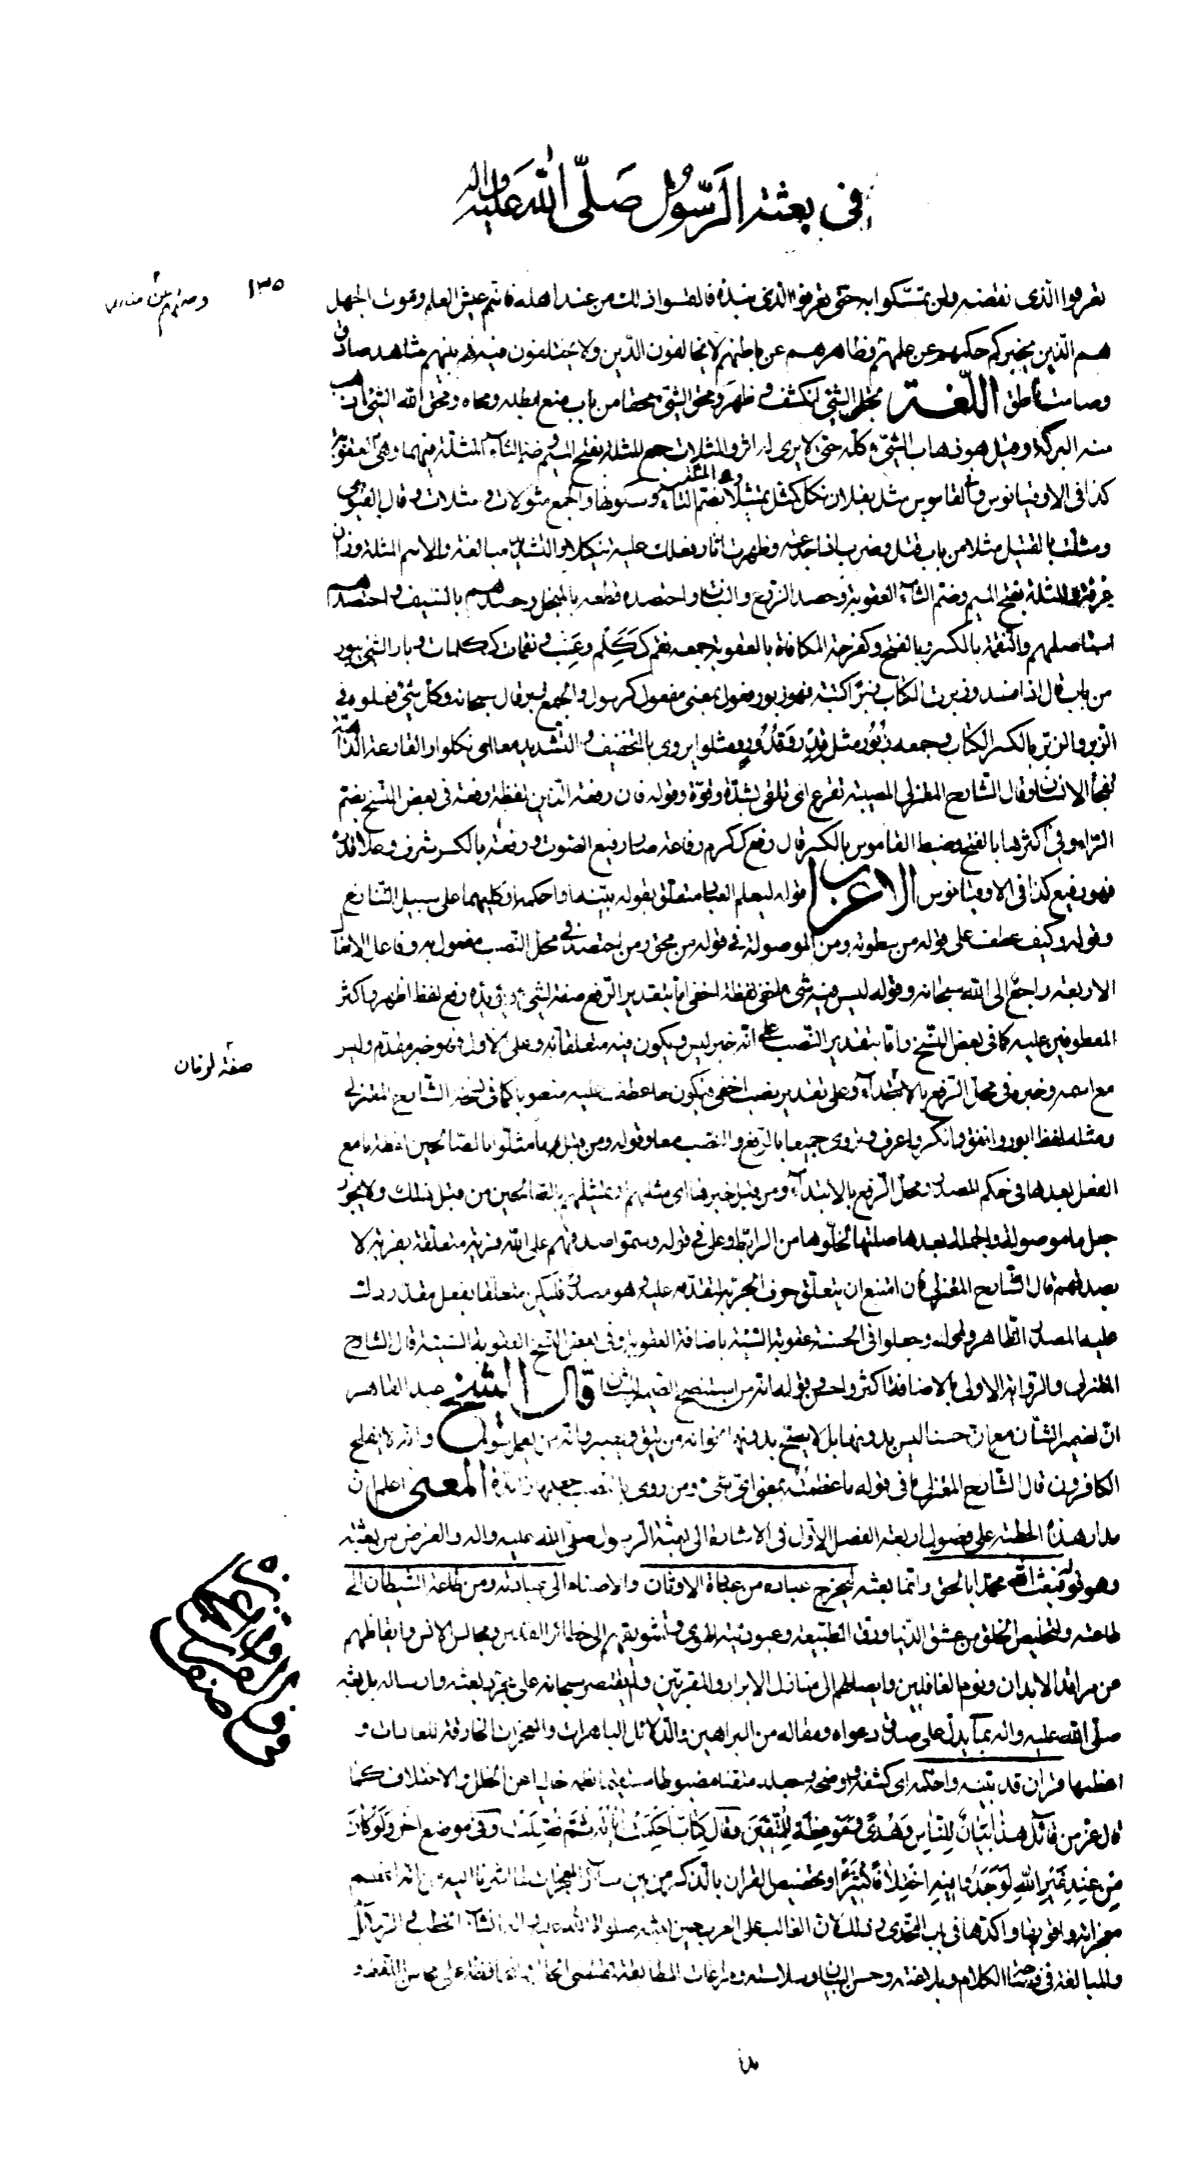 في بعثة الرسول صلى الله عليه واله
١٣٥
تعرفوا الذي نقضه ولن تمسكوا به حتى تعرفوا الذي نبذه فالتمسوا ذلك من عند اهله فانهم عيش العلم وموت الجهل
هم الذين يخبركم حكمهم عن علمهم وظاهرهم عن باطنهم لا يخالفون الدين ولا يختلفون فيه فهو بينهم شاهد صادق
وصامت ناطق اللغة تجلى الشيء انكشف وظهر ومحق الشيء محقا من باب منع ابطله ومحاه ومحق الله الشيء اذهب
منه البركة وقيل هو ذهاب الشيء كله حتى لا يرى له اثر والمثلات جمع المثلة بفتح الميم وضم الثاء المثلثة فيهما وهي العقوبة
كذا في الاوقيانوس وفي القاموس مثل بفلان نكل كمثل تمثيلا بضم الثاء وسكونها والجمع مثولات ومثلات وقال الفيومي
ومثلت بالقتيل مثلا من باب قتل وضرب اذا جدعته وظهرت اثار فعلك عليه تنكيلا والتشديد مبالغة والاسم المثلة وزان
غرفة والمثلة بفتح الميم وضم الثاء العقوبة وحصد الزرع والنبات واحتصده قطعه بالمنجل وحصدهم بالسيف واحتصدهم
استاصلهم والنقمة بالكسر وبالفتح وكفرحة المكافاة بالعقوبة جمعه نقم ككلم وعنب ونقمات ككلمات وبار الشيء يبور
من باب قال اذا فسد وزبرت الكتاب زبرا كتبته فهو زبور فعول بمعنى مفعول كرسول والجمع زبر قال سبحانه وكل شيء فعلوه في
الزبر والزبر بالكسر الكتاب وجمعه زبور مثل قدر وقدور ومثلوا يروى بالتخفيف والتشديد معا اي نكلوا والقارعة الداهية
تفجأ الانسان وقال الشارح المعتزلي المصيبة تقرع اي تلقى بشدة وقوة وقوله فان رفعة الذين لفظة رفعة في بعض النسخ بضم
الراء وفي اكثرها بالفتح وضبط القاموس بالكسر قال رفع ككرم رفاعة صار رفيع الصوت ورفعة بالكسر شرف وعلا قدره
فهو رفيع كذا في الاوقيانوس الاعراب قوله ليعلم العباد متعلق بقوله بينه او احكمه او كليهما على سبيل التنازع
وقوله وكيف عطف على قوله من سطوته ومن الموصولة في قوله من محق ومن احتصد في محل النصب مفعول به وفاعل الافعال
الاربعة راجع الى الله سبحانه وقوله ليس فيه شيء اخفى لفظة اخفى اما بتقدير الرفع صفة لشيء ويؤيده رفع لفظ اظهر واكثر
المعطوفين عليه كما في بعض النسخ واما بتقدير النصب على انه خبر ليس ويكون فيه متعلقا به وعلى الاول فهو خبر مقدم وليس
صفة لزمان
مع اسمه وخبره في محل الرفع بالابتداء وعلى تقدير نصب اخفى فيكون ما عطف عليه منصوبا كما في نسخة الشارح المعتزلي
ومثله لفظ ابور وانفق وانكر واعرف وتروى جميعا بالرفع والنصب معا وقوله ومن قبل ما مثلوا بالصالحين لفظة ما مع
الفعل بعدها في حكم المصدر ومحل الرفع بالابتداء ومن قبل خبرها اي مثلهم او تمثيلهم بالصالحين من قبل ذلك ولا يجوز
جعل ما موصولة والجملة بعدها صلتها لخلوها من الرابط وعلى في قوله وسموا صدقهم على الله فرية متعلقة بفرية لا
بصدقهم قال الشارح المعتزلي فان امتنع ان يتعلق حرف الجر به لتقدمه عليه وهو مصدر فليكن متعلقا بفعل مقدر دل
عليه المصدر الظاهر وقوله وجعلوا في الحسنة عقوبة السيئة باضافة العقوبة وفي بعض النسخ العقوبة السيئة قال الشارح
المعتزلي والرواية الاولى بالاضافة اكثر واحسن وقوله انه من استنصح الضمير للشان قال الشيخ عبد القاهر
ان لضمير الشأن مع ان حسنا ليس بدونها بل لا يصح بدونها نحو انه من يتق ويصبر وانه من يعمل سوء وانه لا يفلح
الكافرون قال الشارح المعتزلي ما في قوله ما عظمته بمعنى اي شيء ومن روى بالنصب جعلها زائدة المعنى اعلم ان
مدار هذه الخطبة على فصول اربعة الفصل الاول في الاشارة الى بعثة الرسول صلى الله عليه واله والغرض من بعثته
وهو قوله فبعث الله محمدا بالحق وانما بعثه ليخرج عباده من عبادة الاوثان والاصنام الى عبادته ومن طاعة الشيطان الى
طاعته ولتخليص الخلق من عشق الدنيا ورق الطبيعة وعبودية الهوى وتشويقهم الى حظائر القدس ومجالس الانس وايقاظهم
من مراقد الابدان ونوم الغافلين وايصالهم الى منازل الابرار والمقربين ولم يقتصر سبحانه على مجرد بعثه وارساله بل بعثه
صلى الله عليه واله بما يدل على صدق دعواه ومقاله من البراهين والدلائل الباهرات والمعجزات الخارقة للعادات و
اعظمها قران قد بينه واحكمه اي كشفه واوضحه وجعله متقنا مضبوطا مستقيم النظم خاليا عن الخلل والاختلاف كما
قال عز من قائل هذا بيان للناس وهدى وموعظة للمتقين وقال كتاب احكمت اياته ثم فصلت وفي موضع اخر ولو كان
من عند غير الله لوجدوا فيه اختلافا كثيرا وتخصيص القران بالذكر من بين سائر المعجزات لما اشرنا اليه من انه اعظم
معجزاته واقويها واكدها في باب التحدي وذلك لان الغالب على العرب حين بعثه صلوات الله عليه واله انشاء الخطب والرسائل
والمبالغة في فصاحة الكلام وبلاغته وحسن البيان وسلاسته ومراعات المطابقة لمقتضى الحال والمحافظة على محاسن اللفظ و